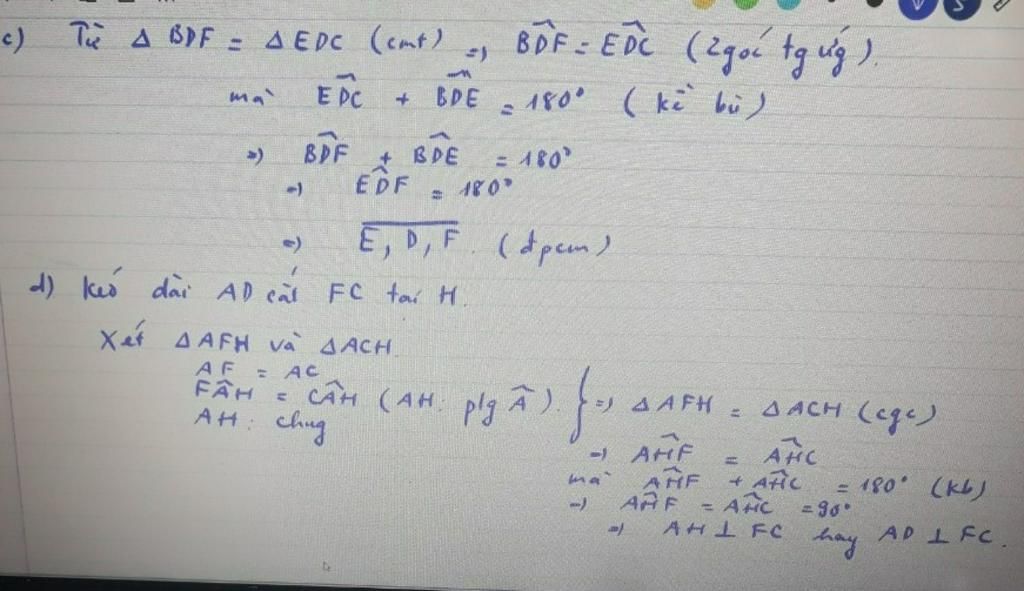 c) Từ Δ BDF = Δ EDC (cmt) => B̂DF = ÊDC (2 góc tg ứg).
mà ÊDC + B̂DE = 180° (kề bù)
=> B̂DF + B̂DE = 180°
=> ÊDF = 180°
=> E, D, F. (đpcm)
d) Kéo dài AD cắt FC tại H.
Xét Δ AFH và Δ ACH
AF = AC
FÂH = CÂH (AH: p/g Â). } => Δ AFH = Δ ACH (cgc)
AH: chug
=> AĤF = AĤC
mà AĤF + AĤC = 180° (kb)
=> AĤF = AĤC = 90°
=> AH ⊥ FC hay AD ⊥ FC.